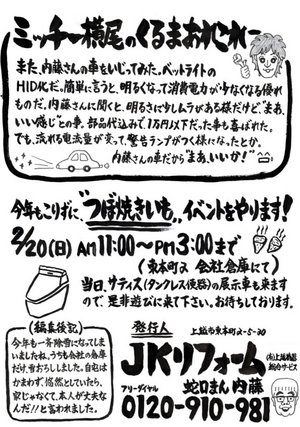 ミッチー横尾のくるまあれこれー
また、内藤さんの車をいじってみた。ベットライトの
HID化だ。簡単に言うと、明るくなって消費電力が少なくなる優れ
ものだ。内藤さんに聞くと、明るさにムラがある様だけど“まあ、
いい感じ”との事。部品代込みで1万円以下だった事も喜ばれた。
でも、流れる電流量が変って、警告ランプがつく様になったとか。
内藤さんの車だから“まあ、いいか!”
今年もこりずに、“つぼ焼きいも”イベントをやります!
2/20(日) AM11:00〜PM3:00まで
(東本町2 会社倉庫にて)
当日、サティス(タンクレス便器)の展示車も来ます
ので、是非遊びに来て下さい。お待ちしております。
(編集後記)
今年も一斉除雪になってしま
いましたね。うちも会社の倉庫
だけ、雪おろししました。自宅は
かまわず、悠然としていたら、
家じゃなくて、本人が丈夫な
んだ!!と言われました。
発行人
上越市東本町2-5-30
JKリフォーム
(有)上越商会
総合サービス
フリーダイヤル
蛇口まん 内藤
0120-910-981